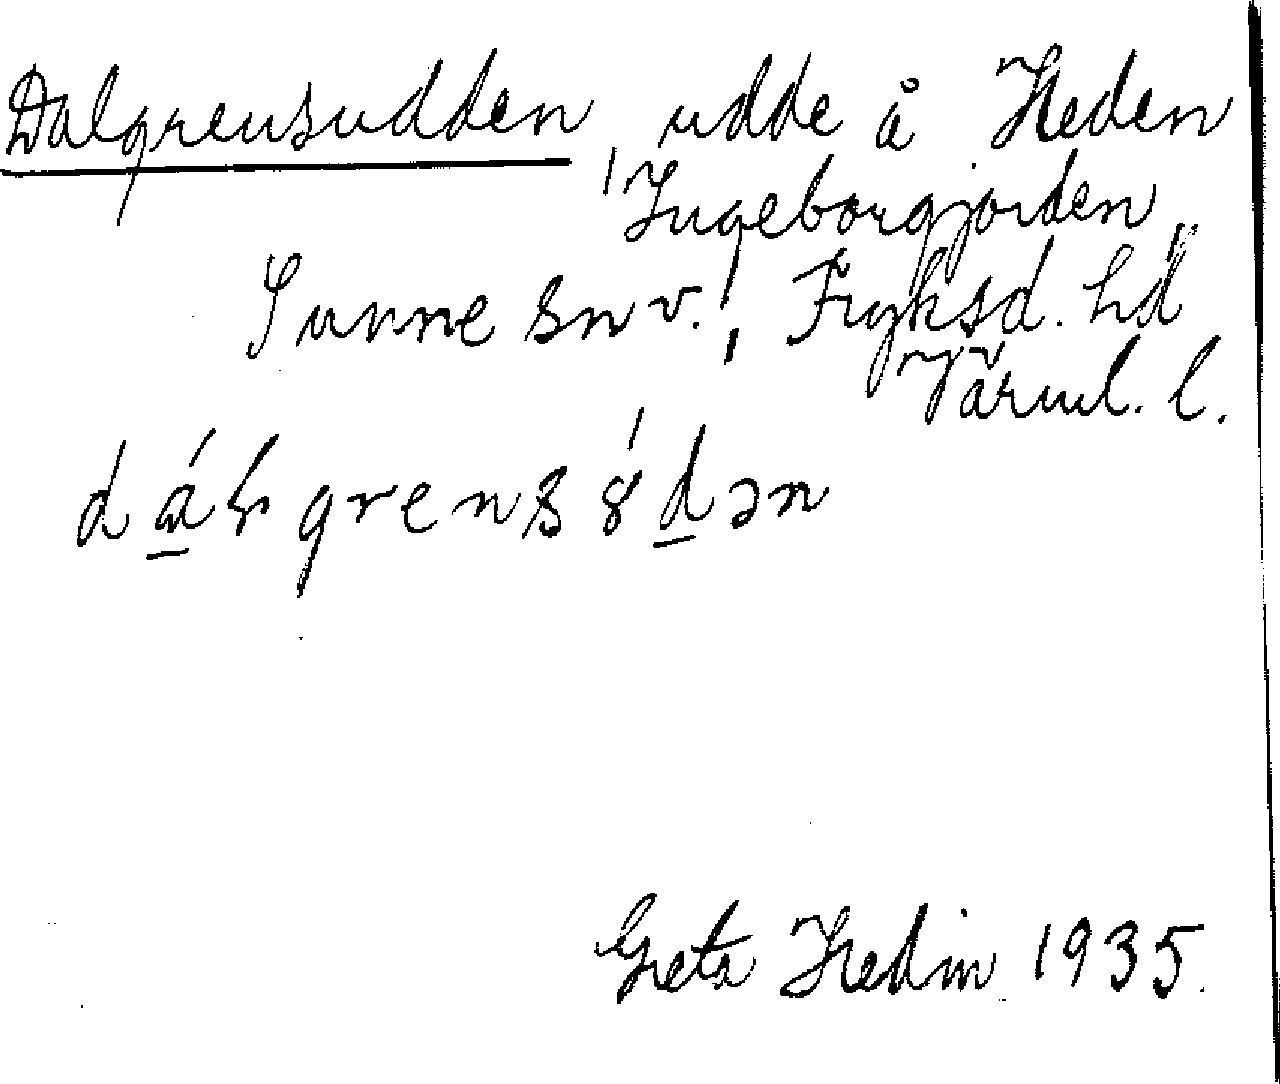 Dalgrensudden, udde å Heden
Ingeborgjorden,
Sunne sn v., Fryksd. hd
Värml. l.
Greta Hedin 1935.